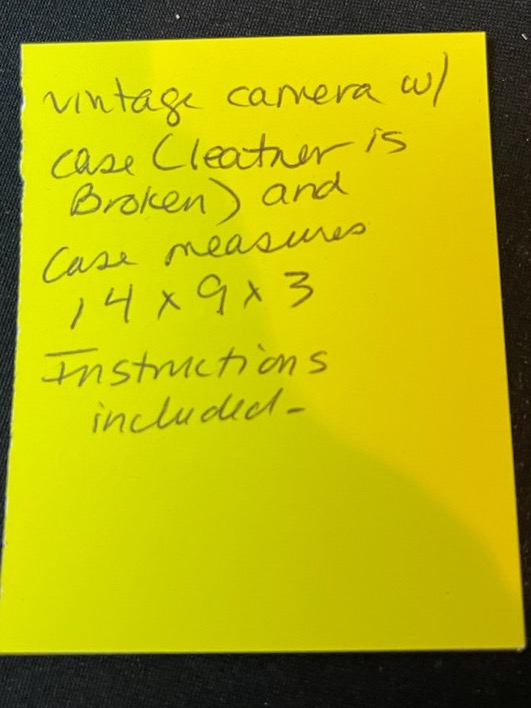 vintage camera w/
case (leather is
Broken) and
Case measures
14 x 9 x 3
Instructions
included-